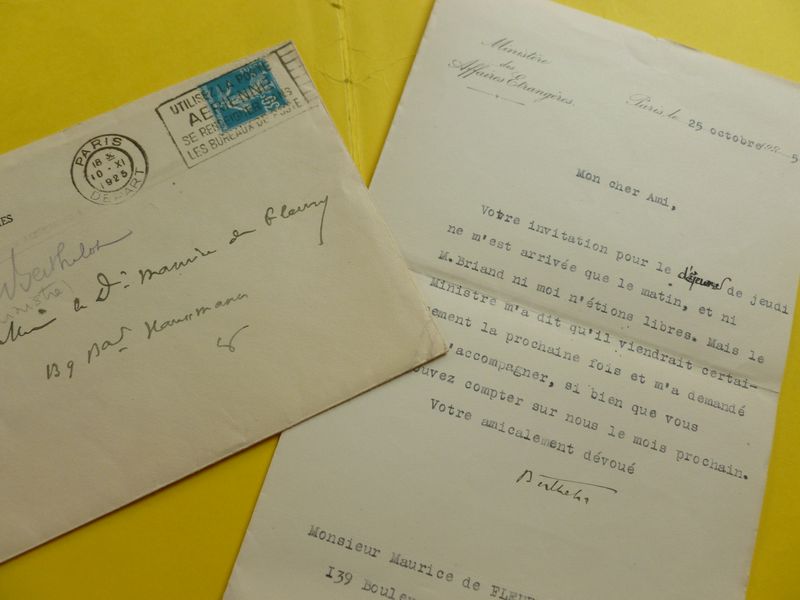 UTILISEZ LA POSTE
AERIENNE
SE RENSEIGNER DANS
LES BUREAUX DE POSTE
PARIS
18
10 · XI
1925
DEPART
RES
Berthelot
Dr. Maurice de Fleury
139 Bard Haussmann
Ministère
des
Affaires Etrangères.
Paris, le 25 octobre 192 5
Mon cher Ami,
Votre invitation pour le déjeuner de jeudi
ne m'est arrivée que le matin, et ni
M.Briand ni moi n'étions libres. Mais le
Ministre m'a dit qu'il viendrait certai-
ement la prochaine fois et m'a demandé
'accompagner, si bien que vous
ouvez compter sur nous le mois prochain.
Votre amicalement dévoué
Berthelot
Monsieur Maurice de FLEU
139 Boulev